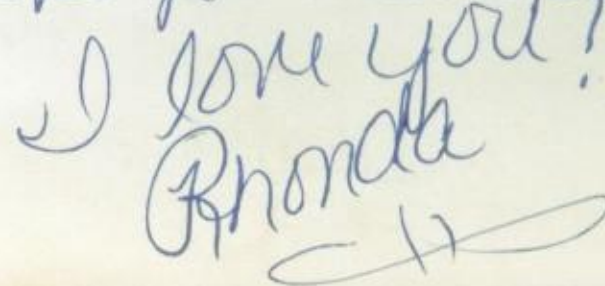 I love you!
Rhonda